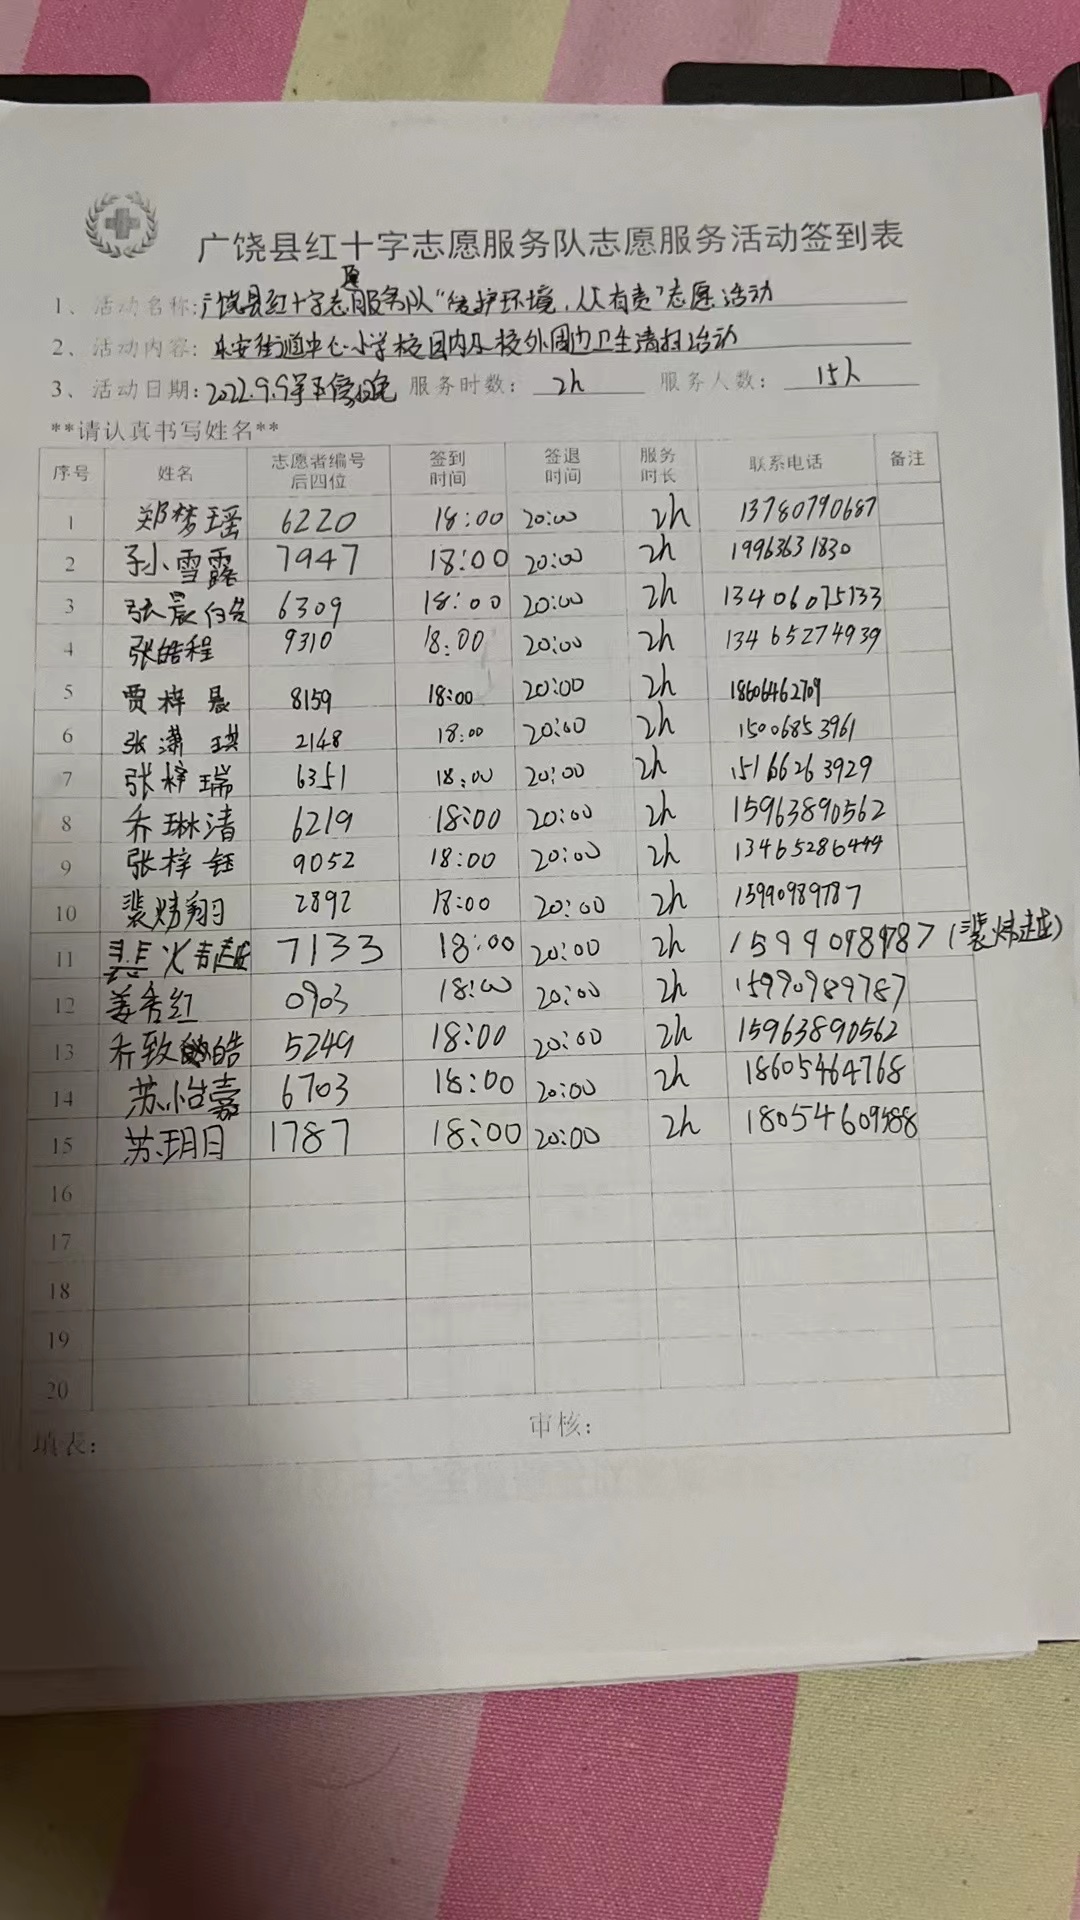 广饶县红十字志愿服务队志愿服务活动签到表
1、活动名称:广饶县红十字志愿服务队"维护环境,人人有责"志愿活动
2、活动内容:乐安街道中心小学校园内及校外周边卫生清扫活动
3、活动日期:2022.9.9 服务时数: 2h 服务人数: 15人
**请认真书写姓名**
序号 姓名 志愿者编号后四位 签到时间 签退时间 服务时长 联系电话 备注
1 郑梦瑶 6220 18:00 20:00 2h 13780790687
2 孙雪露 7947 18:00 20:00 2h 19963631830
3 张晨 6309 18:00 20:00 2h 13406075133
4 张皓程 9310 18:00 20:00 2h 13465274939
5 贾梓晨 8159 18:00 20:00 2h 18606462709
6 张潇琪 2148 18:00 20:00 2h 15006853961
7 张梓瑞 6351 18:00 20:00 2h 15166263929
8 乔琳清 6219 18:00 20:00 2h 15963890562
9 张梓钰 9052 18:00 20:00 2h 13465286444
10 裴炜翔 2892 18:00 20:00 2h 15990989787
11 7133 18:00 20:00 2h 15990989787 (裴炜越)
12 姜秀红 0903 18:00 20:00 2h 15990989787
13 乔致皓 5249 18:00 20:00 2h 15963890562
14 苏怡嘉 6703 18:00 20:00 2h 18605464768
15 苏玥日 1787 18:00 20:00 2h 18054609488
16
17
18
19
20
填表: 审核: